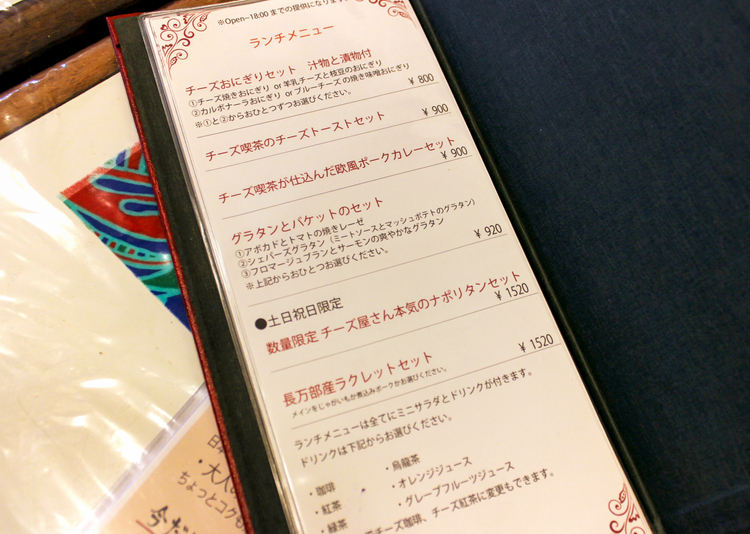 ※Open~18:00 までの提供になります。
ランチメニュー
チーズおにぎりセット 汁物と漬物付
①チーズ焼きおにぎり or 羊乳チーズと枝豆のおにぎり
②カルボナーラおにぎり or ブルーチーズの焼き味噌おにぎり
※①と②からおひとつずつお選びください。
¥ 800
チーズ喫茶のチーズトーストセット
¥ 900
チーズ喫茶が仕込んだ欧風ポークカレーセット
¥ 900
グラタンとバケットのセット
①アボカドとトマトの焼きレーゼ
②シェパーズグラタン（ミートソースとマッシュポテトのグラタン）
③フロマージュブランとサーモンの爽やかなグラタン
※上記からおひとつお選びください。
¥ 920
●土日祝日限定
数量限定 チーズ屋さん本気のナポリタンセット
¥ 1520
長万部産ラクレットセット
メインをじゃがいもか煮込みポークかお選びください。
¥ 1520
ランチメニューは全てにミニサラダとドリンクが付きます。
ドリンクは下記からお選びください。
・珈琲
・紅茶
・緑茶
・烏龍茶
・オレンジジュース
・グレープフルーツジュース
チーズ珈琲、チーズ紅茶に変更もできます。
・大人
ちょっとコクも